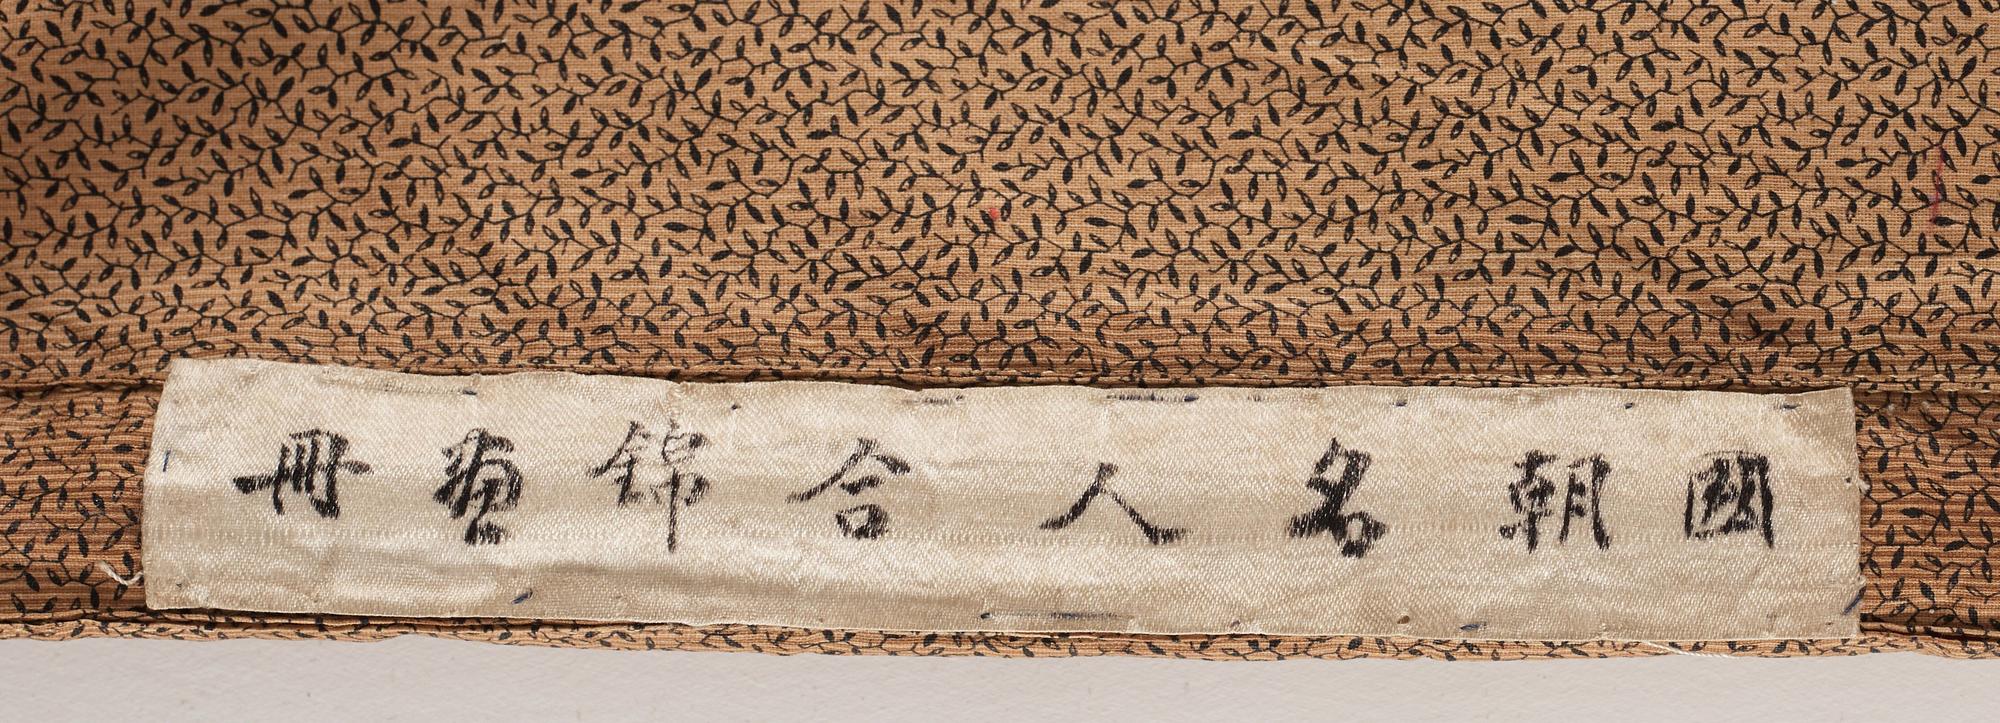 國朝名人合錦畫冊